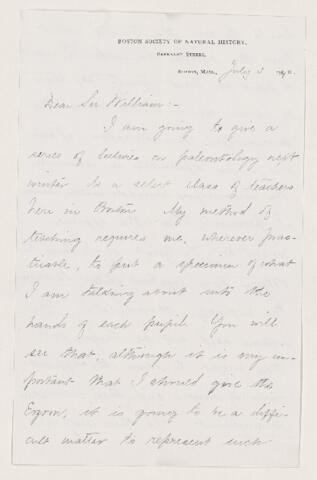 BOSTON SOCIETY OF NATURAL HISTORY,
BERKELEY STREET.
BOSTON, MASS., July 3
Dear Sir William:-
I am going to give a
series of lectures on paleontology next
winter to a select class of teachers
here in Boston My method of
teaching requires me, wherever prac-
ticable, to put a specimen of what
I am talking about into the
hands of each pupil. You will
see that, although it is very im-
portant that I should give the
Eozoon, it is going to be a diffi-
cult matter to represent such